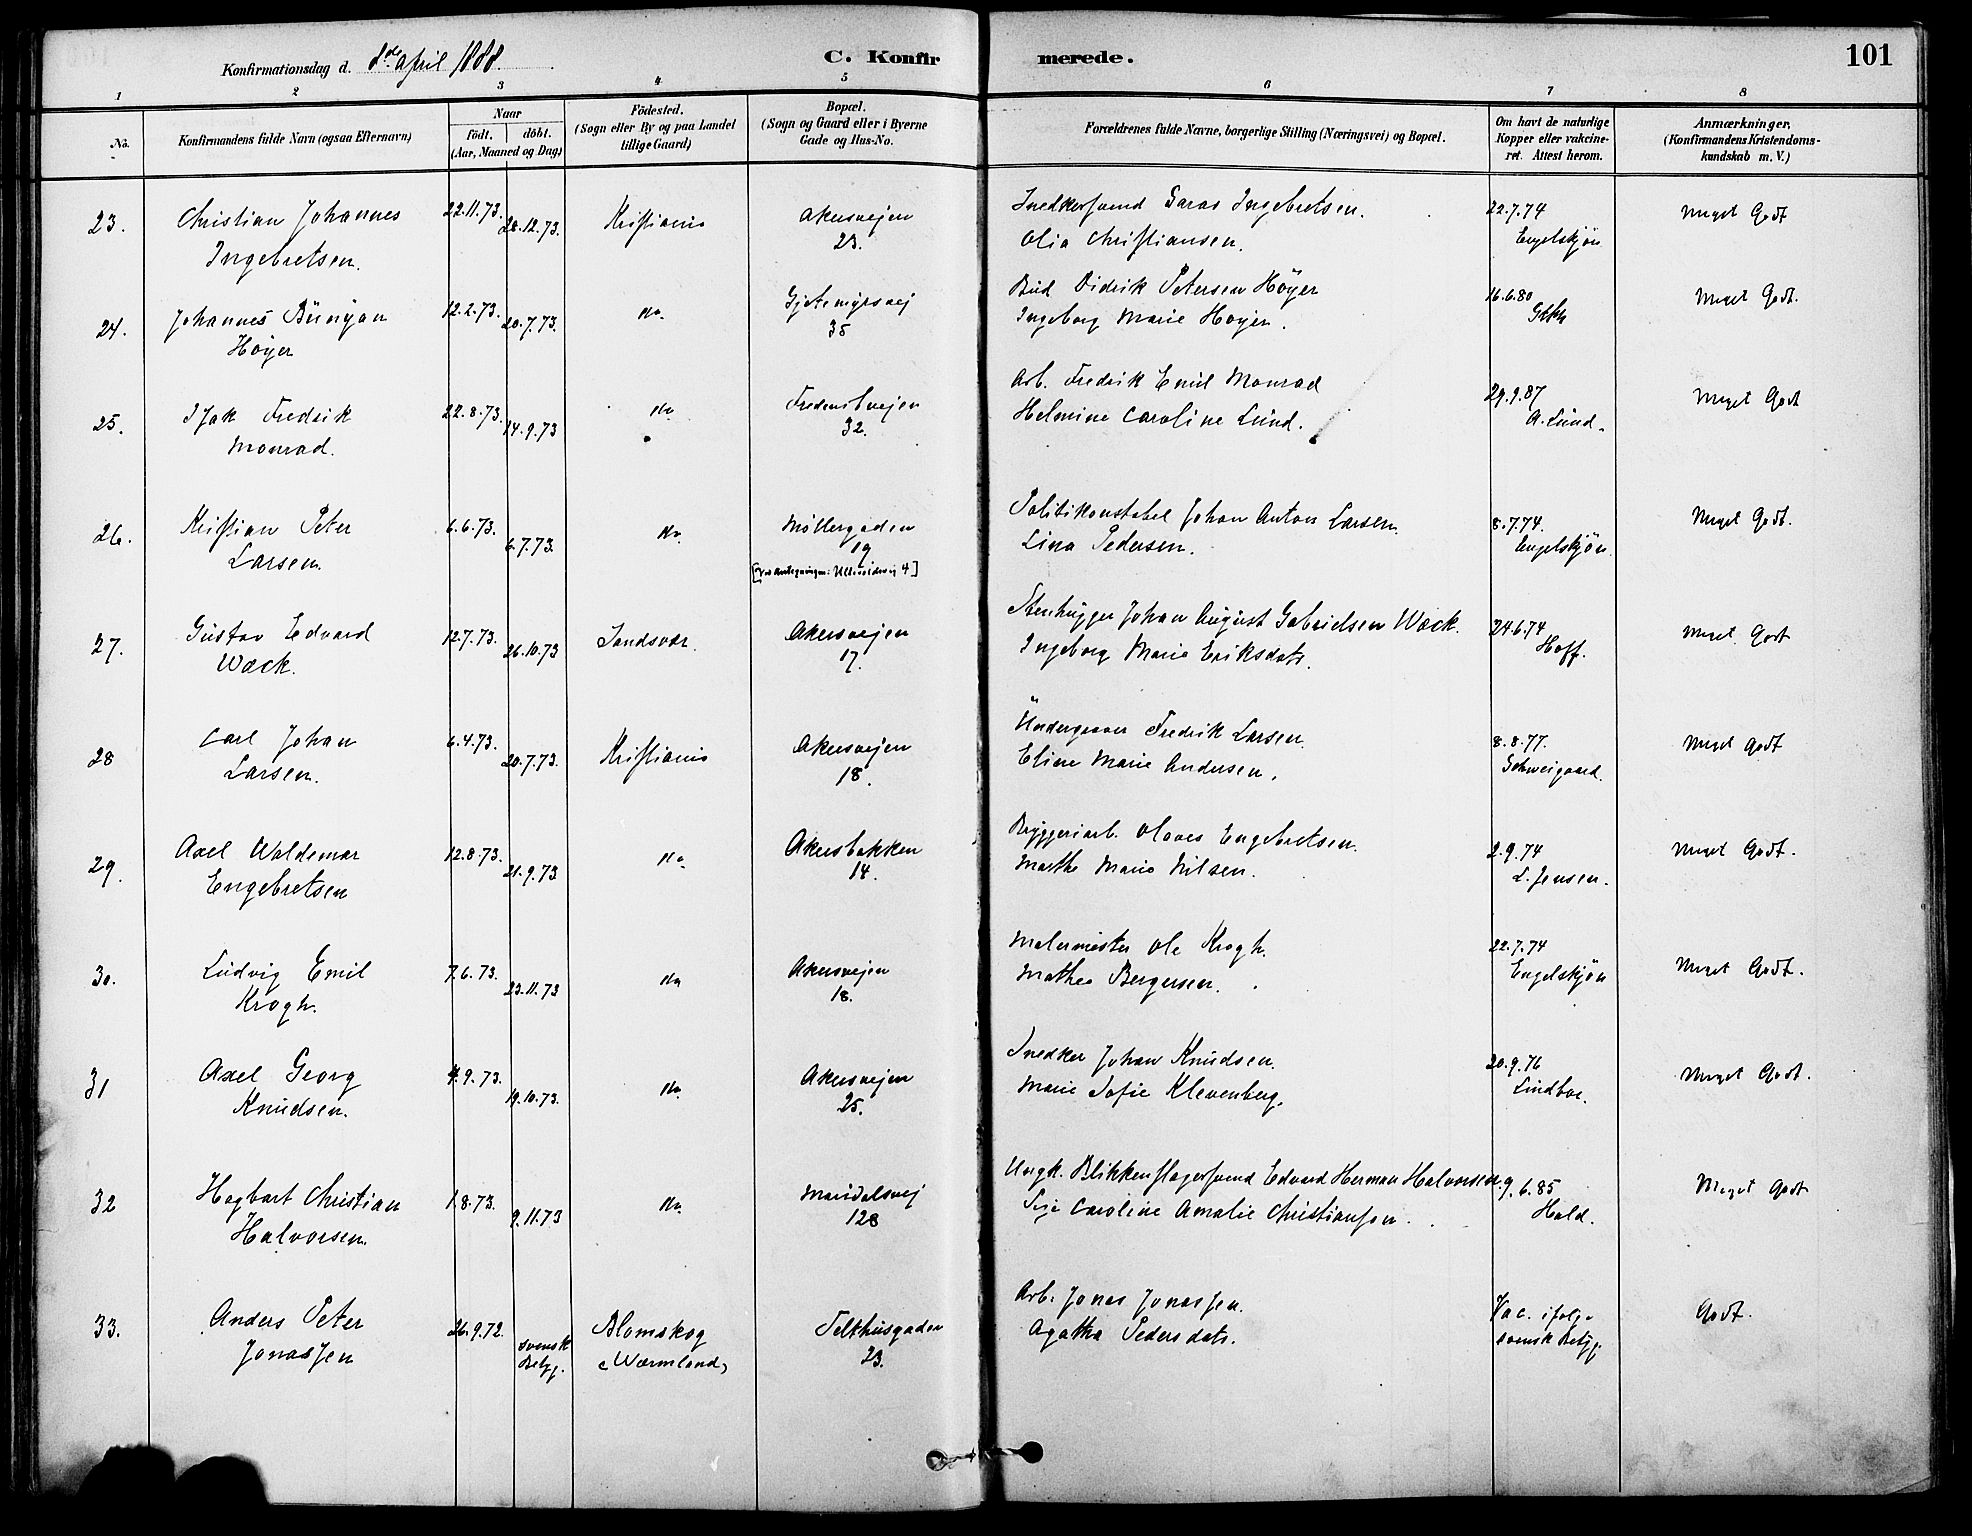 Konfirmationsdag d. 8de april 1888.
C. Konfirmerede.
101
1 2 3 4 5 6 7 8
No.
Konfirmandens fulde Navn (ogsaa Efternavn)
Naar
födt. döbt.
(Aar, Maaned og Dag)
Födested.
(Sogn eller By og paa Landet
tillige Gaard)
Bopæl.
(Sogn og Gaard eller i Byerne
Gade og Hus-No.
Forældrenes fulde Navne, borgerlige Stilling (Næringsvei) og Bopæl.
Om havt de naturlige
Kopper eller vakcine-
ret. Attest herom.
Anmærkninger.
(Konfirmandens Kristendoms-
kundskab m. V.)
23. Christian Johannes
Ingebretsen.
22.11.73. 28.12.73. Kristiania
Akersvejen
23.
Snedkersvend Ingebretsen.
Olia Christiansen.
22.7.74
Engelskjön
Meget Godt
24. Johannes Bünyan
Höyer
12.2.73. 20.7.73. do.
Gjetemyrsvej
35
Bud Didrik Petersen Höyer
Ingeborg Marie Hoyer.
16.6.80
Meget Godt.
25. Isak Fredrik
Monrad.
22.8.73. 14.9.73 do
Fredensbvejen
32.
Arb. Fredrik Emil Monrad
Helmine Caroline Lünd.
29.9.87
A. Lünd.
Meget Godt
26. Kristian Peter
Larsen.
6.6.73. 6.7.73. do.
Möllergaden
19
[ved Antegningen: Ullevoldsvej 4]
Politikonstabel Johan Anton Larsen.
Lina Pedersen.
8.7.74.
Engelskjön.
Meget Godt.
27. Güstav Edvard
Wäck.
12.7.73. 26.10.73 Sandsvær.
Akersvejen
17.
Stenhugger Johan August Gabrielsen Wäck.
Ingeborg Marie Eriksdatr.
24.6.74
Hoff.
Meget Godt
28 Carl Johan
Larsen.
6.4.73. 20.7.73. Kristiania
Akersvejen
18.
Fredrik Larsen.
Eline Marie Andersen.
8.8.77.
Schweigaard.
Meget Godt
29. Axel Waldemar
Engebretsen
12.8.73. 21.9.73 do
Akersbakken
14.
Bryggeriarb. Olaves Engebretsen.
Marthe Marie Nilsen.
2.9.74
L. Jensen.
Meget Godt.
30. Lüdvig Emil
Krogh.
7.6.73. 23.11.73 do
Akersvejen
18.
Malermester Ole Krogh.
Mathea Bergersen.
22.7.74
Engelskjön
Meget Godt.
31 Axel Georg
Knüdsen.
4.9.73. 19.10.73. do.
Akersvejen
25.
Snedker Johan Knüdsen.
Marie Sofie Klevenberg.
20.9.76
Lindboe.
Meget Godt.
32 Hagbart Christian
Halvorsen.
1.8.73. 9.11.73 do.
Maridalsvej
128
Ungk. Blikkenslagersvend Edvard Herman Halvorsen.
Pige Caroline Amalie Christiansen.
9.6.85
Hald.
Meget Godt
33. Anders Peter
Jonassen
26.9.72. svensk
Betyg.
Blomskog
(Wærmland)
Telthusgaden
23.
Arb. Jonas Jonassen.
Agatha Pedersdatr.
Vac. ifølge
svensk Betyg.
Godt.